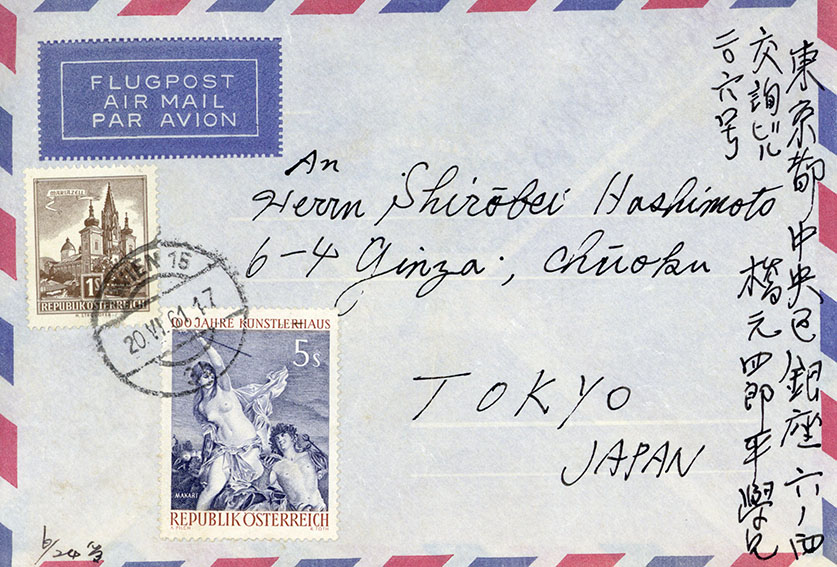 FLUGPOST
AIR MAIL
PAR AVION
MARIAZELL
1S
REPUBLIK ÖSTERREICH
WIEN 15
20.VI.61 1-7
100 JAHRE KÜNSTLERHAUS
5s
MAKART
REPUBLIK ÖSTERREICH
An
Herrn Shirōbei Hashimoto
6-4 Ginza; Chūoku
TOKYO
JAPAN
東京都中央区銀座六ノ四
交詢ビル
二〇六号
橋元四郎平學兄
6/24